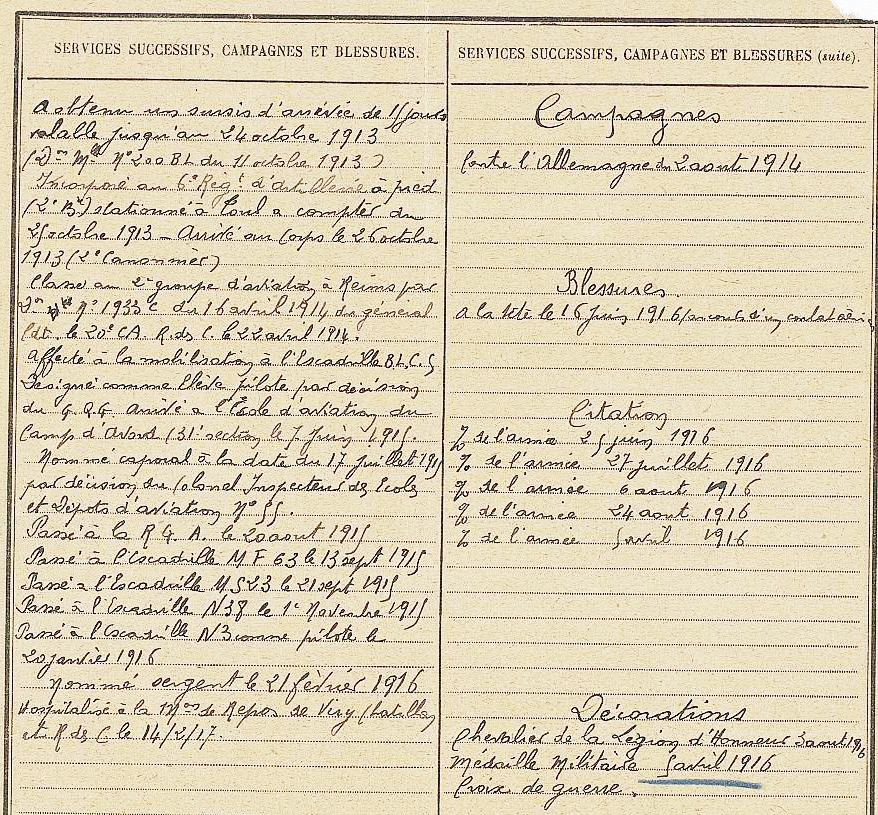 SERVICES SUCCESSIFS, CAMPAGNES ET BLESSURES.
a obtenu un sursis d'arrivée de 15 jours
valable jusqu'au 24 octobre 1913
N° 200 BL du 11 octobre 1913)
Incorporé au 6e Régt d'artillerie à pied
(2e Bie) stationné à Toul a compter du
25 octobre 1913 _ Arrivé au Corps le 26 octobre
1913 (2e Canonnier)
Classé au 2e groupe d'aviation à Reims par
N° 1933 c du 16 avril 1914 du général
Cdt le 20e CA. R. des C. le 22 avril 1914.
affecté à la mobilisation à l'Escadrille BL.C.5
Désigné comme Elève pilote par décision
du G.Q.G arrivé à l'Ecole d'aviation du
Camp d'Avord (31e section le 7 Juin 1915.
Nommé caporal à la date du 17 Juillet 1915
par décision du Colonel Inspecteur des Ecoles
et Dépots d'aviation N° 55.
Passé à la R.G.A. le 20 aout 1915
Passé à l'Escadrille M F 63 le 13 sept 1915
Passé a l'Escadrille M S 23 le 21 sept 1915
Passé à l'Escadrille N 38 le 1e Novembre 1915
Passé à l'Escadrille N 3 comme pilote le
20 janvier 1916
Nommé sergent le 21 février 1916
Hospitalisé à la Mon de Repos de Viry Chatillon
et R des C le 14/2/17
SERVICES SUCCESSIFS, CAMPAGNES ET BLESSURES (suite).
Campagnes
Contre l'Allemagne du 2 aout 1914
Blessures
a la tête le 16 Juin 1916 (au cours d'un combat aérien
Citation
% de l'armée 25 juin 1916
% de l'armée 27 juillet 1916
% de l'armée 6 aout 1916
% de l'armée 24 aout 1916
% de l'armée 5 avril 1916
Décorations
Chevalier de la Légion d'Honneur 3 aout 1916
Médaille Militaire 5 avril 1916
Croix de guerre.